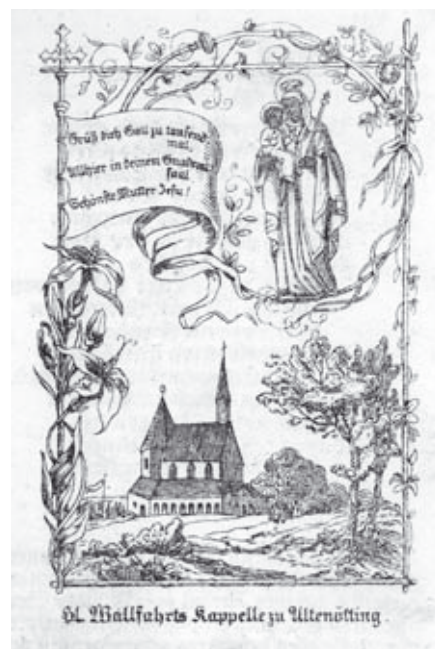 Grüß dich Gott zu tausend
mal,
Allhier in deinem Gnaden
saal
Schönste Mutter Jesu!
Hl. Wallfahrts Kappelle zu Altenötting.